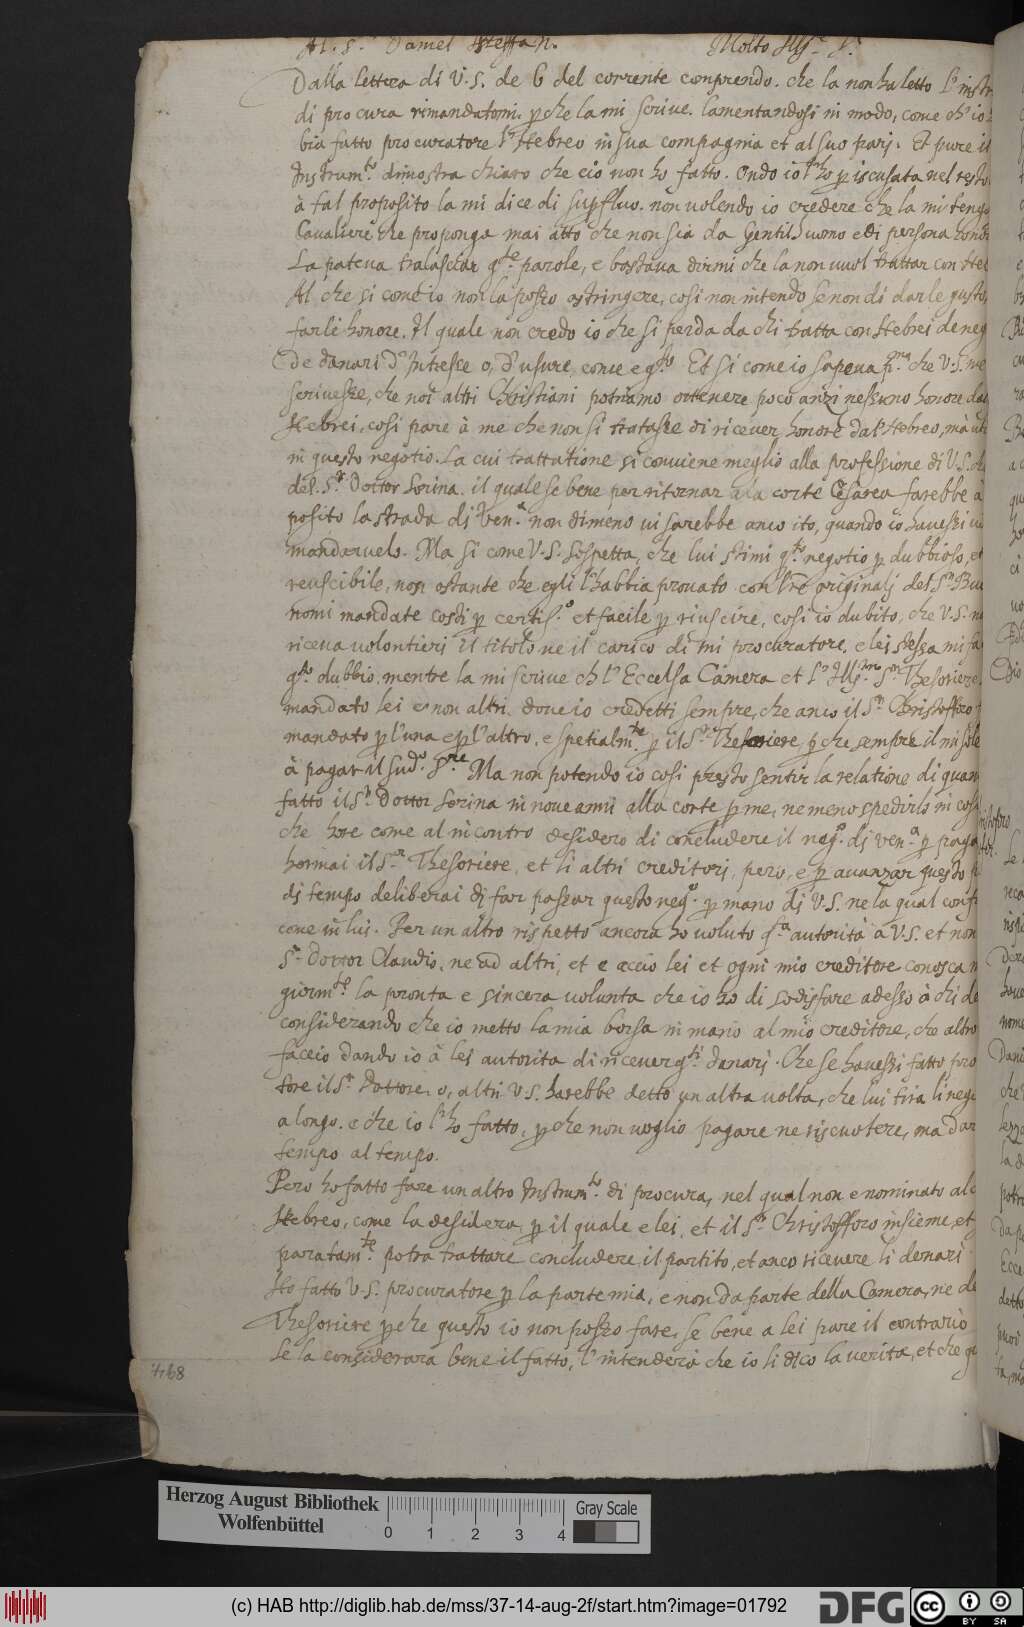 Al. S.r Daniel Steffan. Molto Ill.re S.r
Dalla lettera di V.S. de 6 del corrente comprendo. che la non ha letto l'instr
di procura rimandatomi. p che la mi scrive. lamentandosi in modo, come ch' io
bia fatto procuratore l'Hebreo in sua compagnia et al suo pari. Et pure il
Instrum.to dimostra chiaro che ciò non ho fatto. Ondo io l'ho p iscusata nel resto
à tal proposito la mi dice di supfluo. non volendo io credere che la mi tenga
Cavaliere che proponga mai atto che non sia da Gentil'huomo e di persona
La poteva tralasciar q.te parole, e bastava dirmi che la non vuol trattar con Heb
Al che si come io non la posso astringere, cosi non intendo se non di darle gusto,
farle honore. Il quale non credo io che si perda da chi tratta con Hebrei de neg
de danari d'Intresse o, d'usure, come e q.to Et si come io sapeva p.ma che V.S. me
scrivesse, che noi altri Christiani potriamo ottenere poco anzi nessuno honore da
Hebrei, cosi pare à me che non si trattasse di ricever honore dal'Hebreo, mà uti
in questo negotio. La cui trattatione si conviene meglio alla professione di V.S. che
del. S.r Dottor Sorina. il quale se bene per ritornar a la corte Cesarea farebbe à
posito la strada di Ven.a non dimeno vi sarebbe anco ito, quando io havessi
mandarvelo. Ma si come V.S. sospetta, che lui stimi q.to negotio p dubbioso, et
reuscibile, non ostante che egli l'habbia provato con l're originalj del S.r Bu
nomi mandate costi p certis.o et facile p riuscire, cosi io dubito, che V.S. n
riceva volontieri il titolo ne il carico di mi procuratore. e lei stessa mi fa
q.to dubbio, mentre la mi scrive ch l'Eccelsa Camera et l'Ill.mo S.r Thesoriere
mandato lei e non altri. dove io credetti sempre, che anco il S.r Christofforo
mandato p l'una e p l'altro. e spetialm.te p il S.r Thesoriere, p che sempre il mi sole
à pagar il sud.o S.re Ma non potendo io cosi presto sentir la relatione di quan
fatto il S.r Dottor Sorina in nove anni alla corte p me, ne meno spedirlo in cosi
che hore come al incontro desidero di concludere il neg.o di ven.a p paga
hormai il S.r Thesoriere, et li altri creditorj, pero, e p avanzar questo
di tempo deliberai di far passar questo neg.o p mano di V.S. ne la qual confi
come in lui. Per un altro rispetto ancora ho voluto q.ta autorità à V.S. et non
S.r Dottor Claudio, ne ad altri, et e accio lei et ogni mio creditore conosca m
giorm.te la pronta e sincera volunta che io ho di sodisfare adesso à chi de
considerando che io metto la mia borsa in mano al mio creditore, che altro
faccio dando io à lei autorita di ricever q.ti danarj. Che se havessi fatto proc
tore il S.r Dottore, o, altri V.S. harebbe detto un altra volta, che lui tira li neg
a longo. e che io l'ho fatto, p che non voglio pagare ne riscuotere, ma dar
tempo al tempo.
Pero ho fatto fare un altro Instrum.to di procura, nel qual non e nominato alc
Hebreo, come la desidera, p il quale e lei, et il S.r Christofforo insieme, et
paratam.te potra trattare concludere il partito, et anco ricevere li denari
Ho fatto V.S. procuratore p la parte mia, e non da parte della Camera, ne de
Thesoriere p che questo io non posso fare. se bene a lei pare il contrario
Se la considerara bene il fatto, l'intenderà che io li dico la verita, et che q
Herzog August Bibliothek
Wolfenbüttel
0 1 2 3 4
Gray Scale
(c) HAB http://diglib.hab.de/mss/37-14-aug-2f/start.htm?image=01792
DFG
cc BY SA